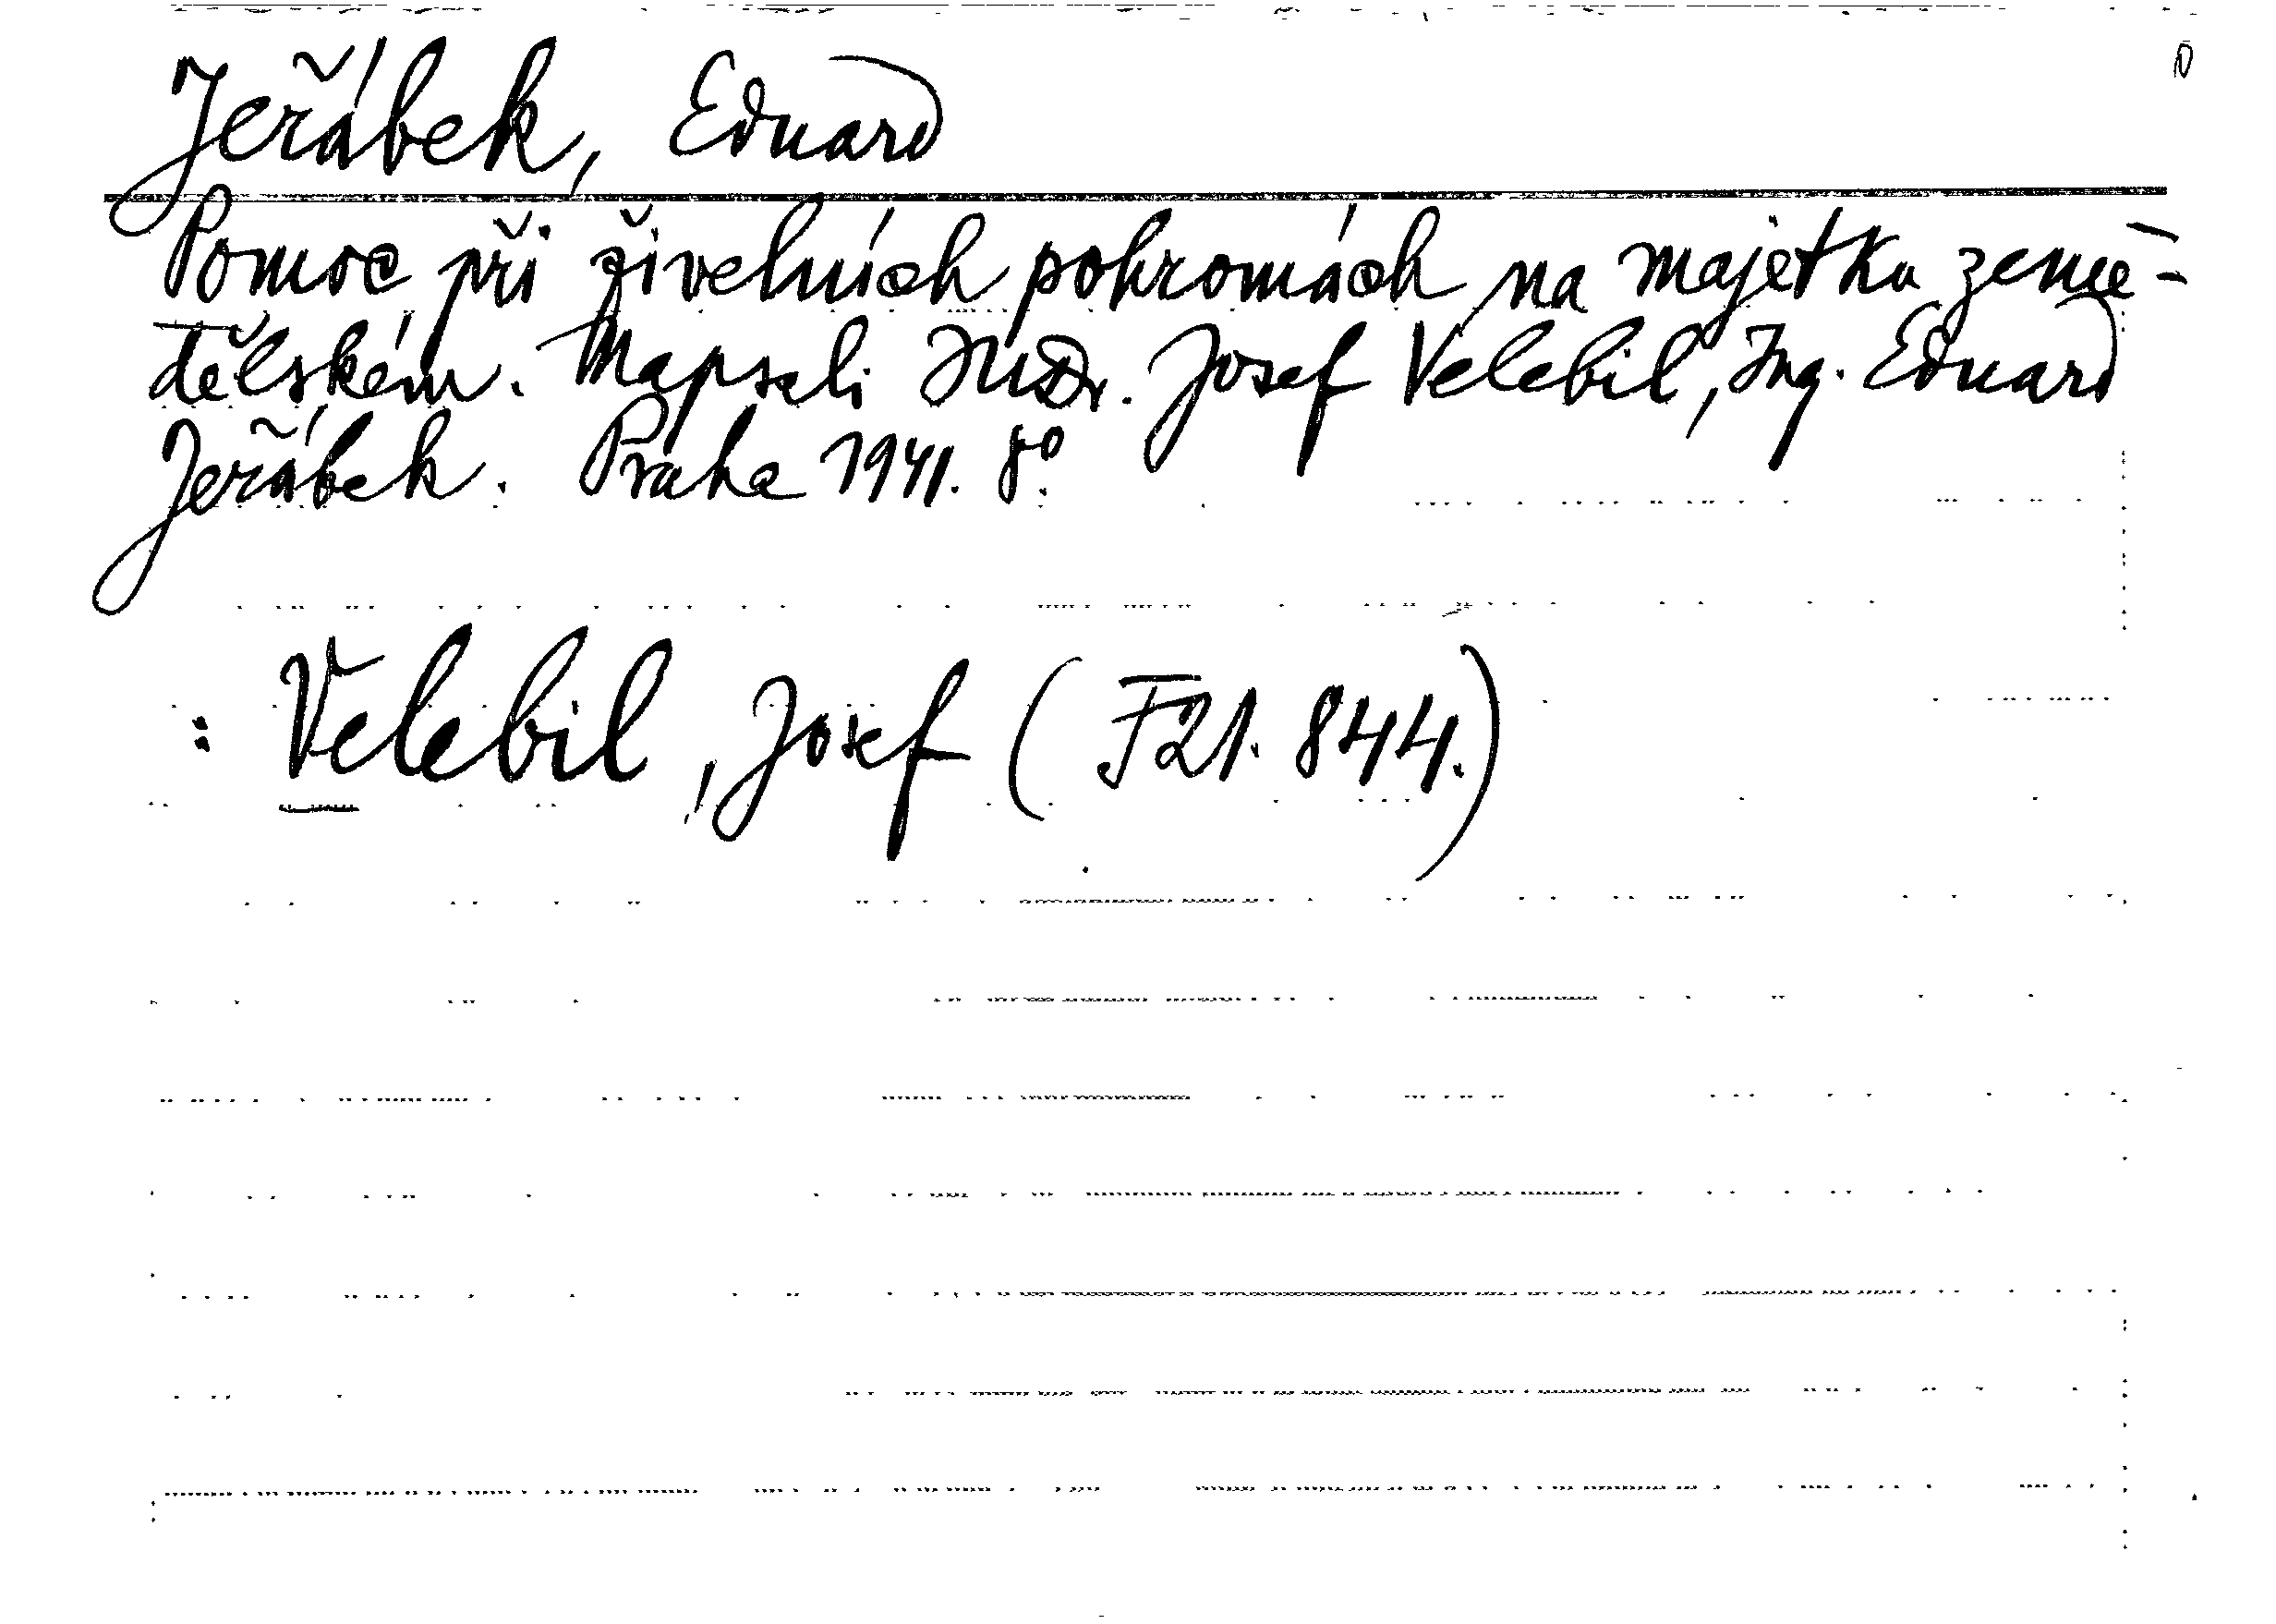 Jeřábek, Eduard
Pomoc při živelních pohromách na majetku země-
dělském. Napsali JUDr. Josef Velebil, Ing. Eduard
Jeřábek. Praha 1941. 8°.
: Velebil, Josef (F 21.844.)